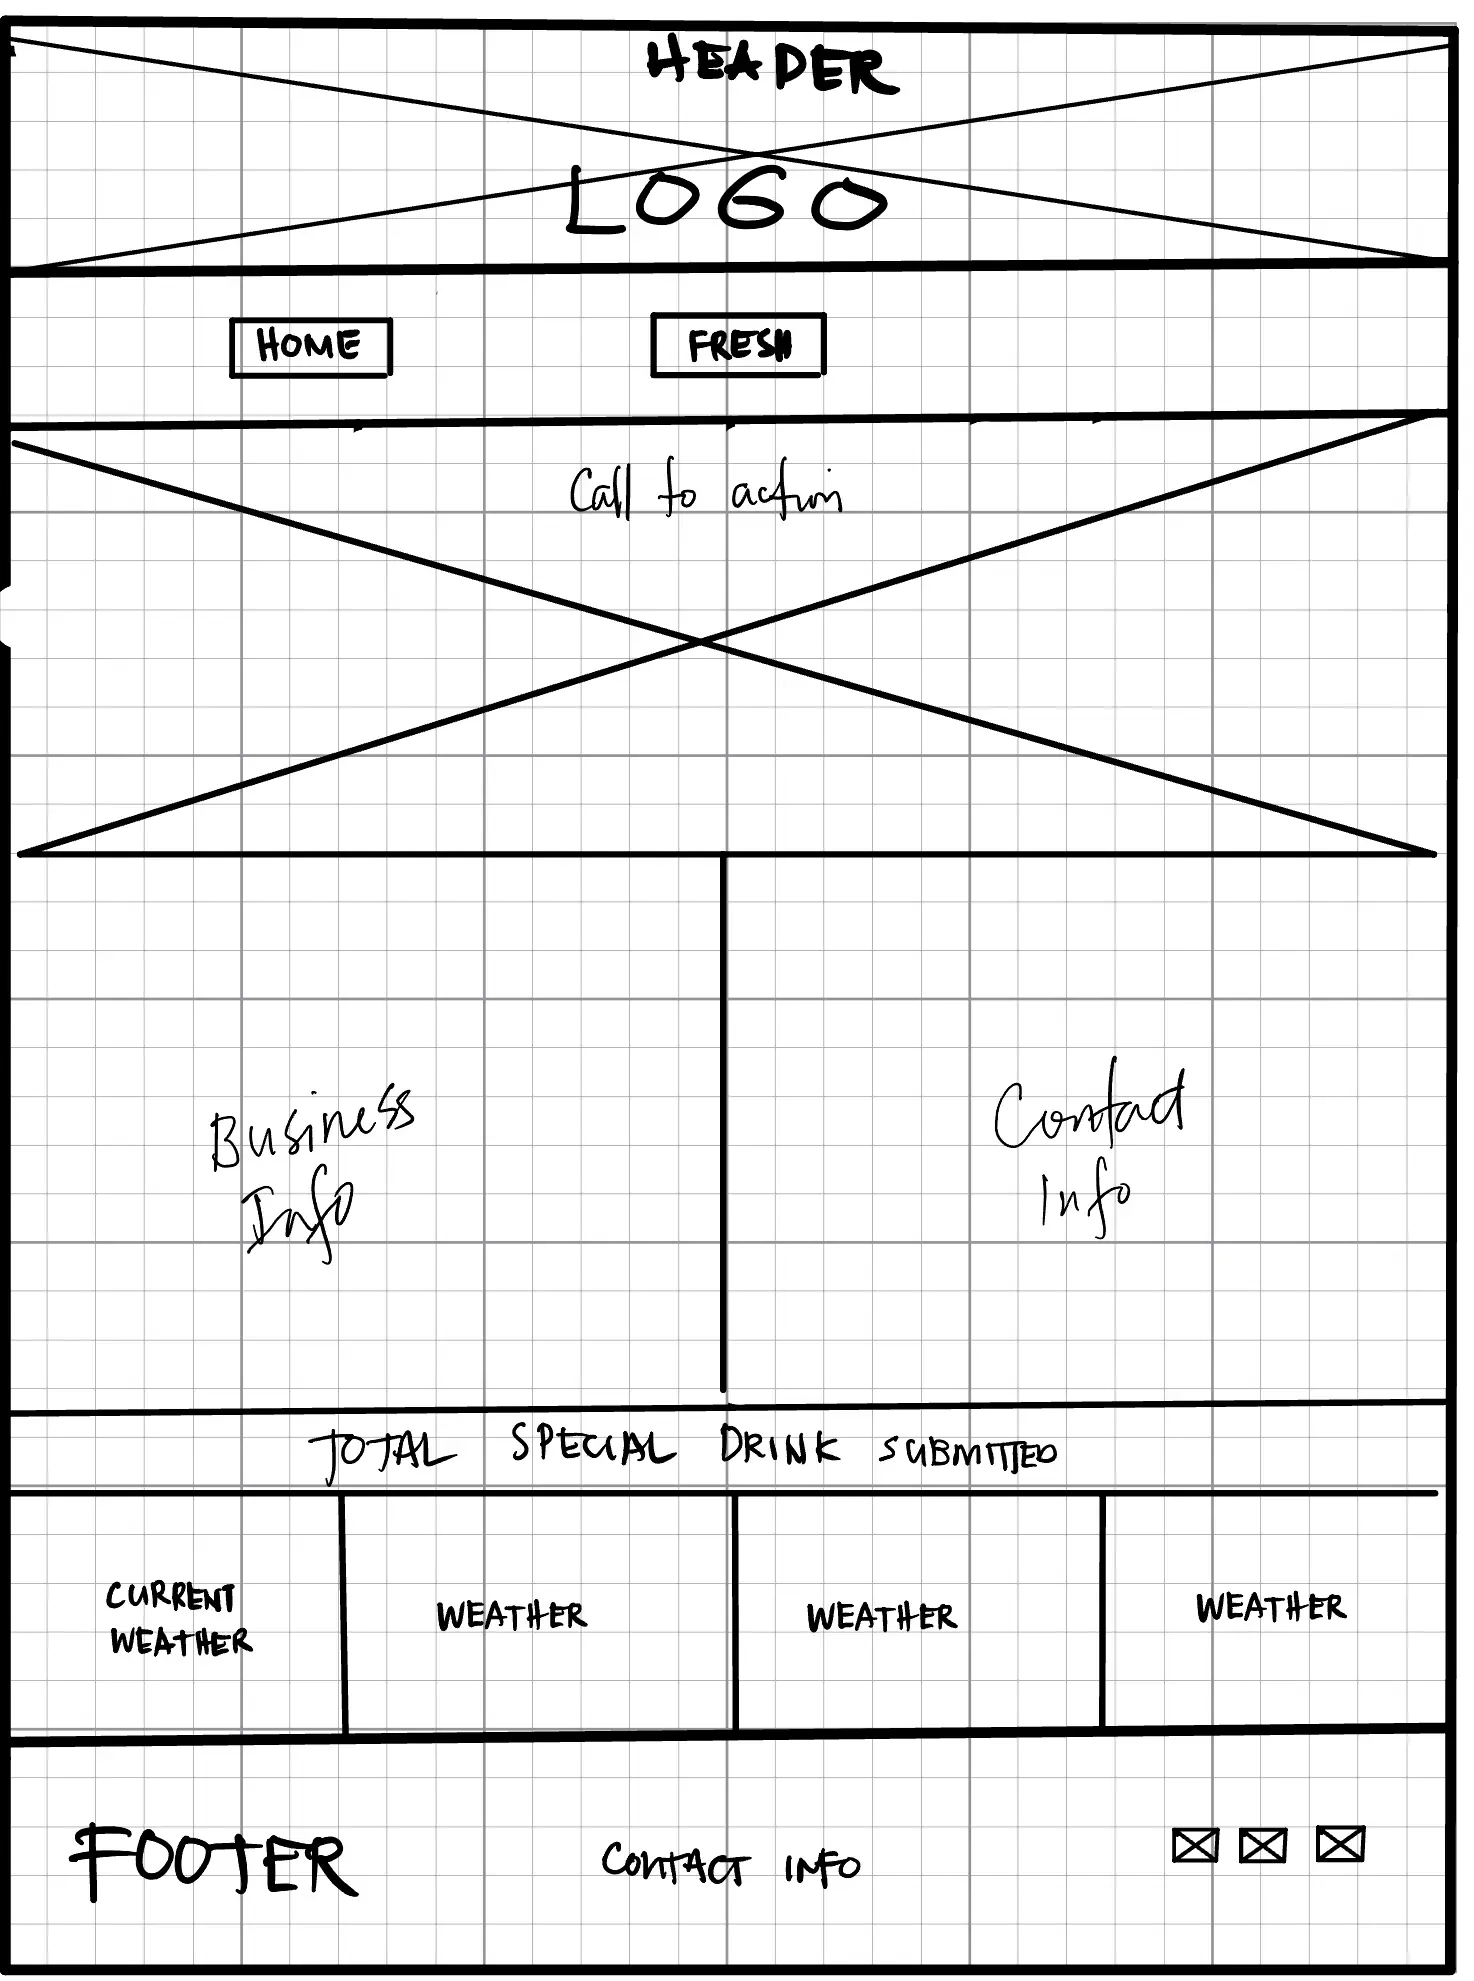 HEADER
LOGO
HOME FRESH
Call to action
Business
Info
Contact
Info
TOTAL SPECIAL DRINK SUBMITTED
CURRENT
WEATHER
WEATHER
WEATHER
WEATHER
FOOTER
CONTACT INFO